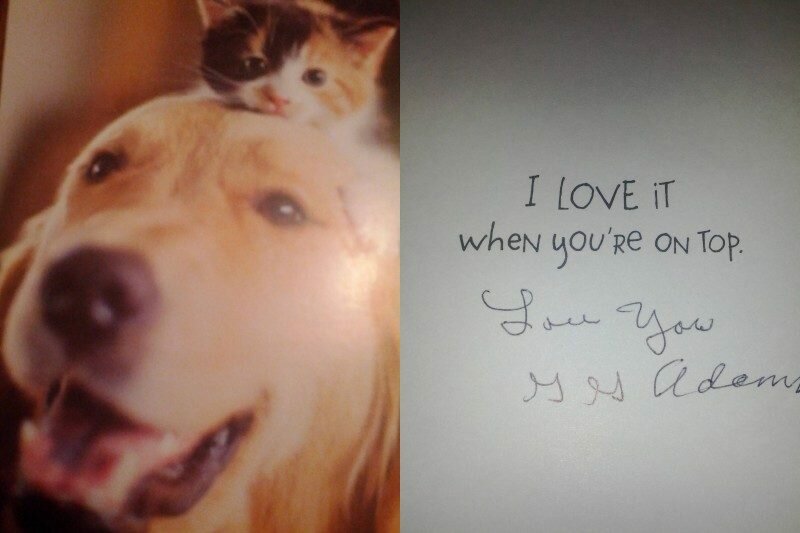 I LOVE iT
wheN you'Re oN Top.
Love You
G G Adams